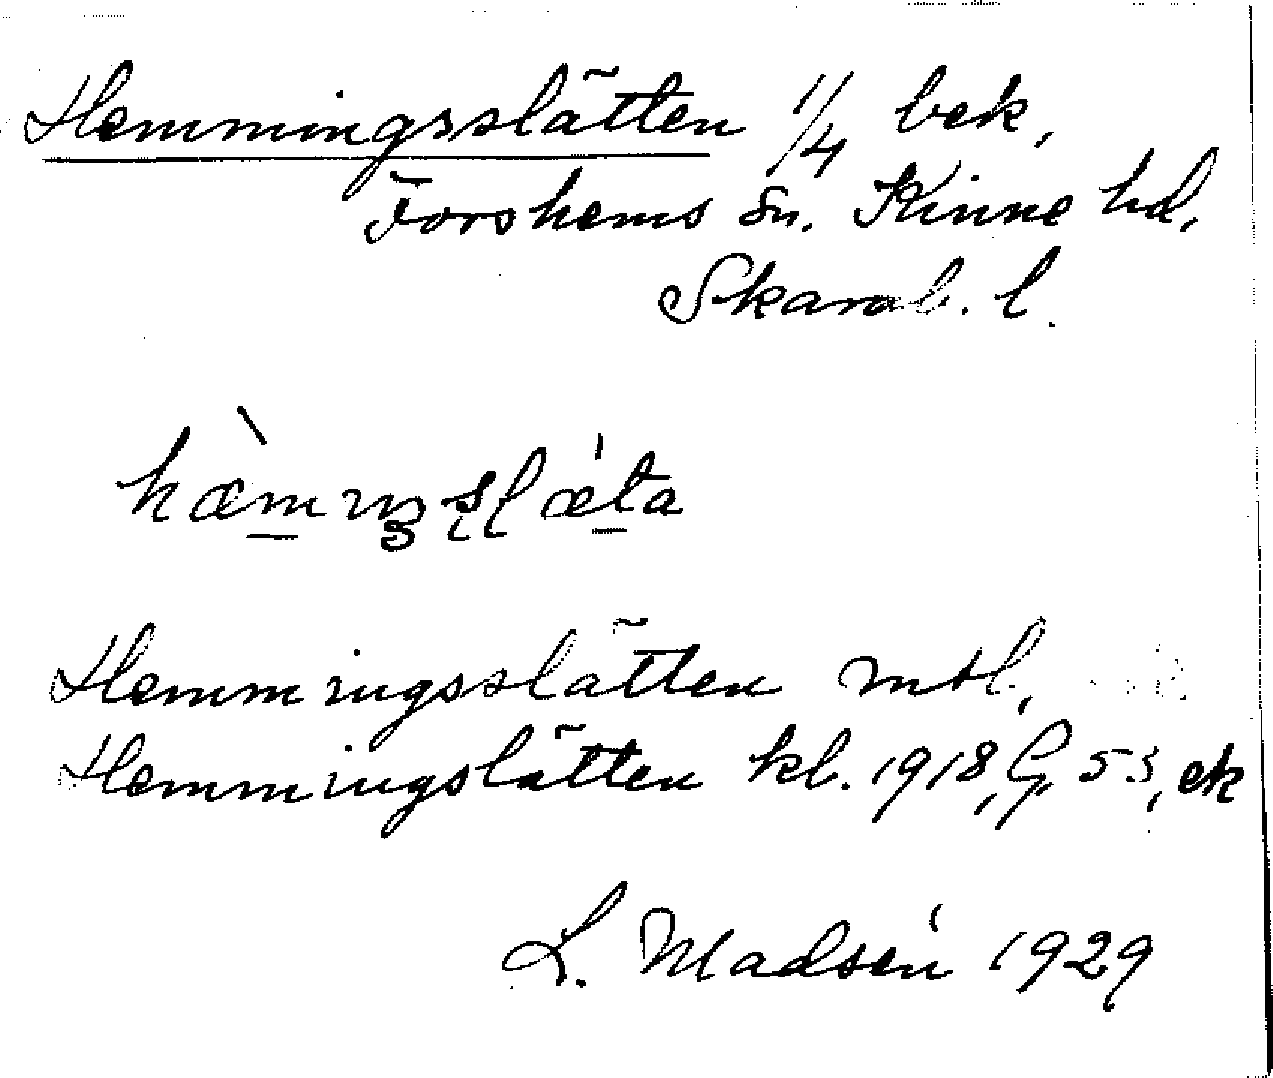 Hemmingsslätten 1/4 bek,
Forshems sn. Kinne hd,
Skarab. l.
Hemmingsslätten mtl,
Hemmingslätten kb. 1918, G, 53, ek
L. Madsén 1929